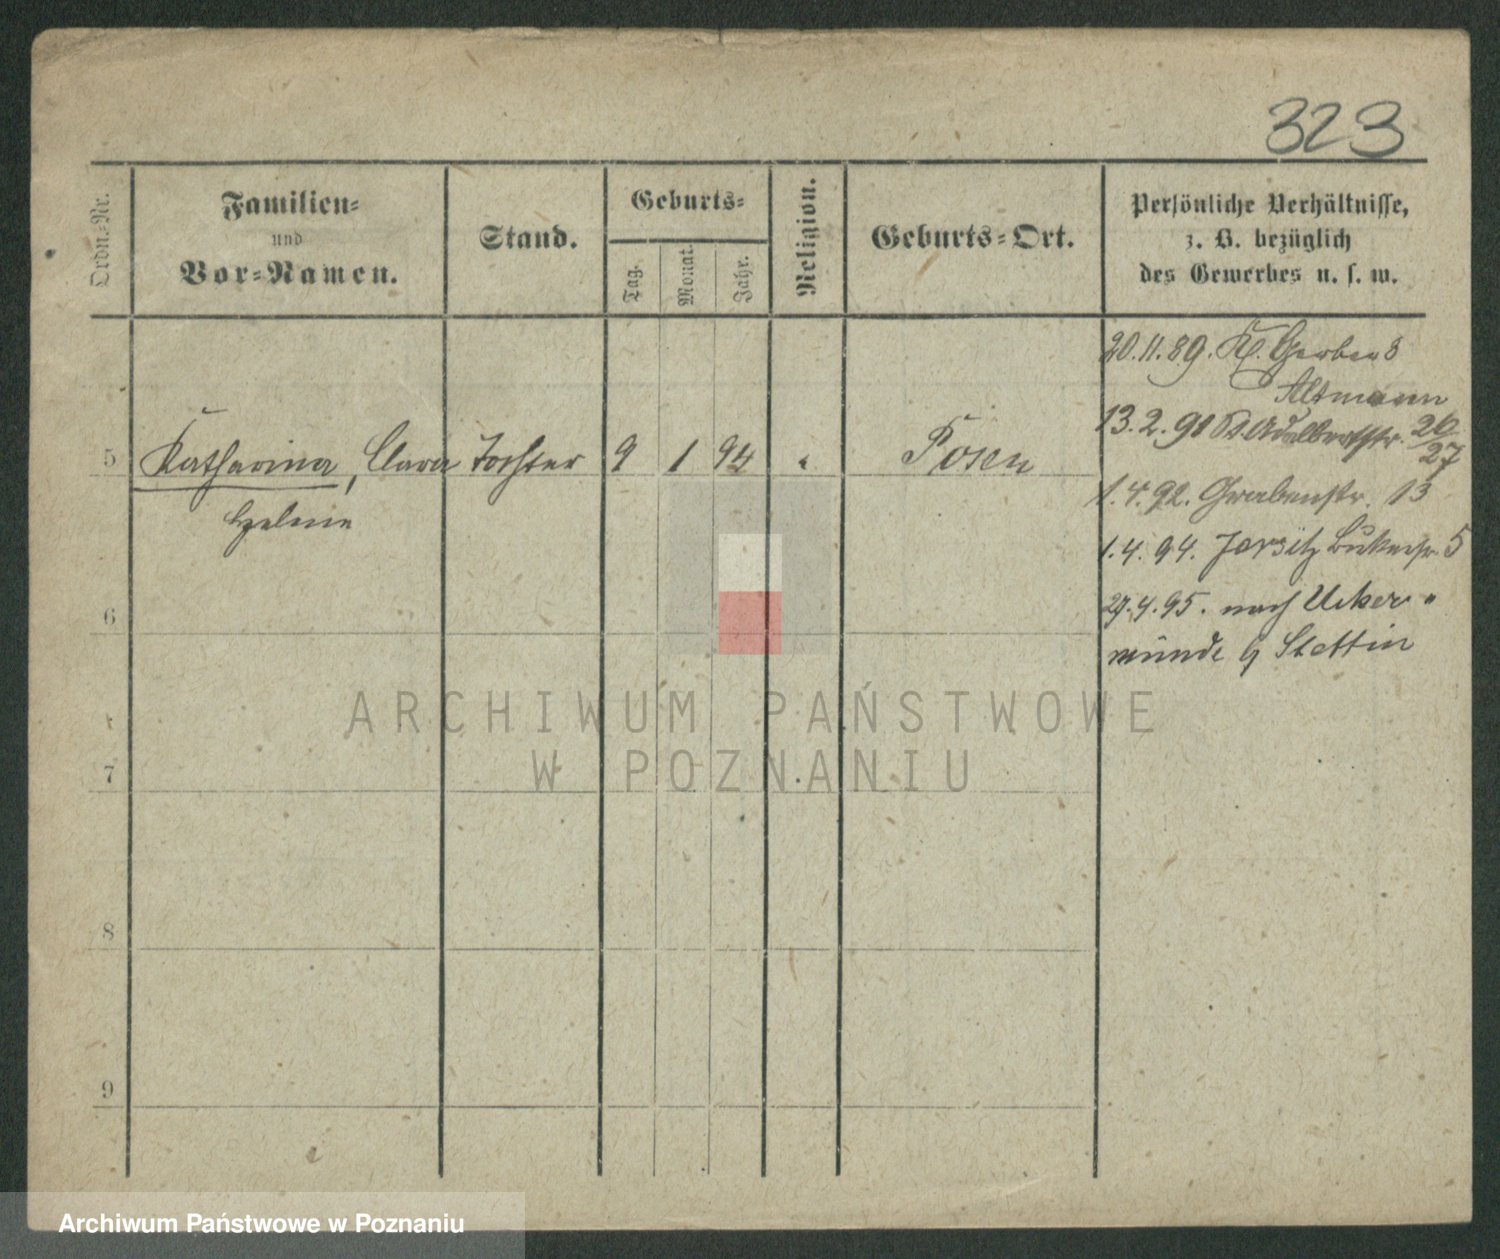 323
Ordn.-Nr.
Familien-
und
Vor-Namen.
Stand.
Geburts-
Tag.
Monat.
Jahr.
Religion.
Geburts-Ort.
Persönliche Verhältnisse,
z. B. bezüglich
des Gewerbes u. s. w.
20.11.89. Kl. Gerber 8
Altmann
13.2.91 St. Adalbertstr. 26
27
1.4.92. Grabenstr. 13
1.4.94. Jersitz 5
29.4.95. nach Ucker-
münde Stettin
5 Katharina, Clara Tochter 9 1 94 " Posen
Helene
6
7
8
9
ARCHIWUM PAŃSTWOWE
W POZNANIU
Archiwum Państwowe w Poznaniu